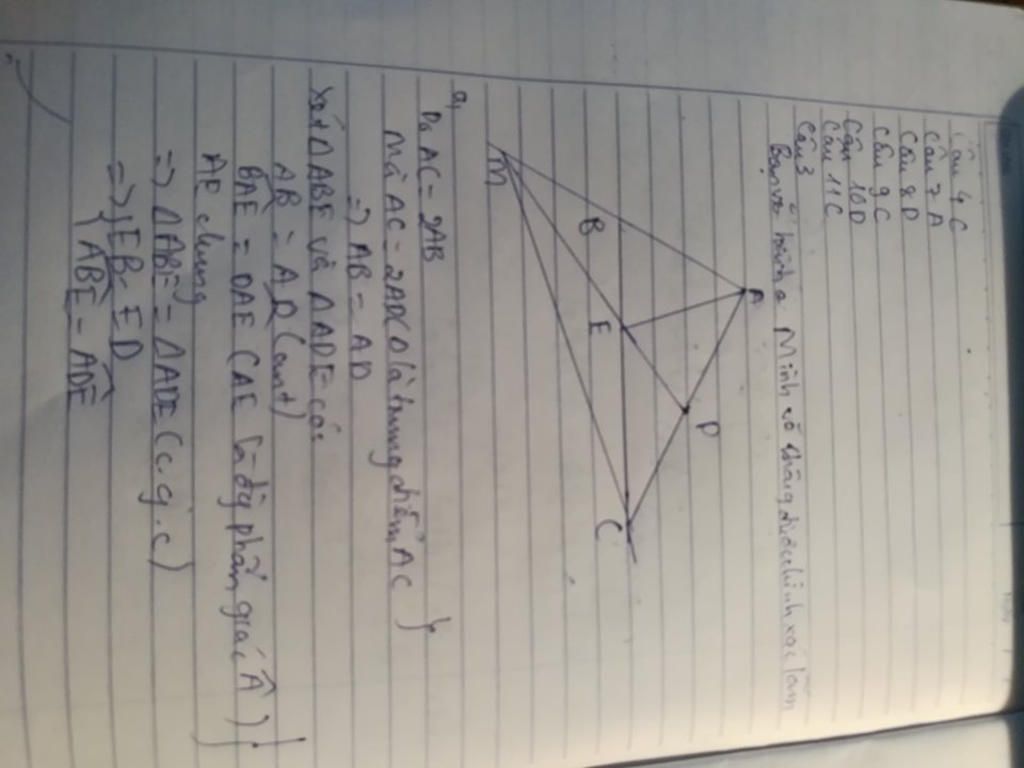 Câu 4 C
Câu 7 A
Câu 8 D
Câu 9 C
Câu 10D
Câu 11C
Câu 3
Bạn vẽ hình ... Mình vẽ không được chính xác lắm
A
B
E
D
C
M
a,
Do AC = 2AB
Mà AC = 2AD (D là trung điểm AC }
=> AB = AD
Xét ΔABE và ΔADE có:
AB = AD (cmt)
BAE = DAE (AE là đg phân giác Â) }
AE chung
=> ΔABE = ΔADE (c.g.c)
=> { EB = ED
ABE = ADE